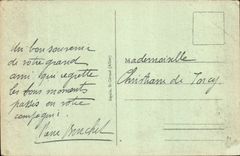 Un bon souvenir
de votre grand
ami qui regrette
les bons moments
passés en votre
compagnie.
Mademoiselle
Christiane de Torcy